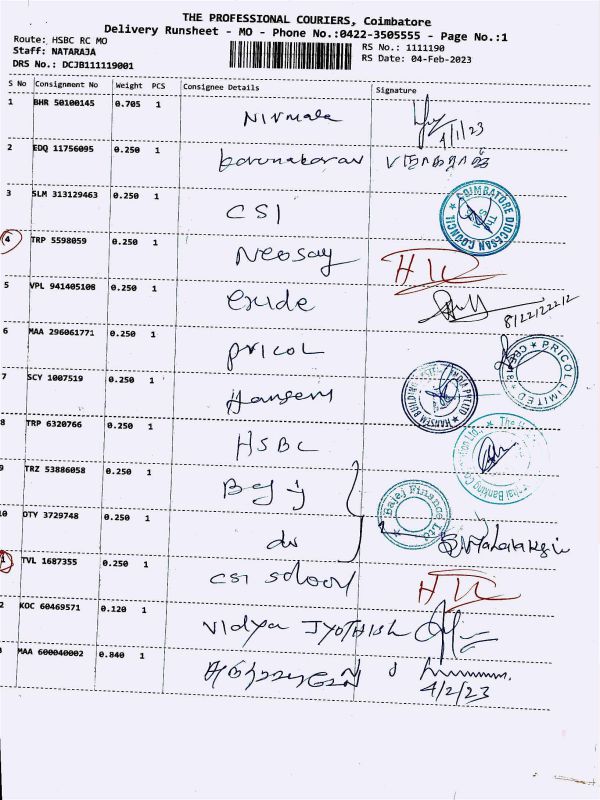 THE PROFESSIONAL COURIERS, Coimbatore
Delivery Runsheet - MO - Phone No.:0422-3505555 - Page No.:1
Route: HSBC RC MO
RS No.: 1111190
Staff: NATARAJA
RS Date: 04-Feb-2023
DRS No.: DCJB111119001
S No Consignment No Weight PCS Consignee Details Signature
1 BHR 50100145 0.705 1 Nirmala 4/1/23
2 EDQ 11756095 0.250 1 Karunakaran
3 SLM 313129463 0.250 1 CSI COIMBATORE DIOCESAN COUNCIL
4 TRP 5598059 0.250 1 Neosay
5 VPL 941405108 0.250 1 Exide
6 MAA 296061771 0.250 1 PRICOL PRICOL LIMITED
7 SCY 1007519 0.250 1 Hansem
8 TRP 6320766 0.250 1 HSBC
9 TRZ 53886058 0.250 1 Bajaj Finance Ltd
10 OTY 3729748 0.250 1 do
TVL 1687355 0.250 1 CSI School
2 KOC 60469571 0.120 1 Vidya JYOTHISH
MAA 600040002 0.840 1
4/2/23